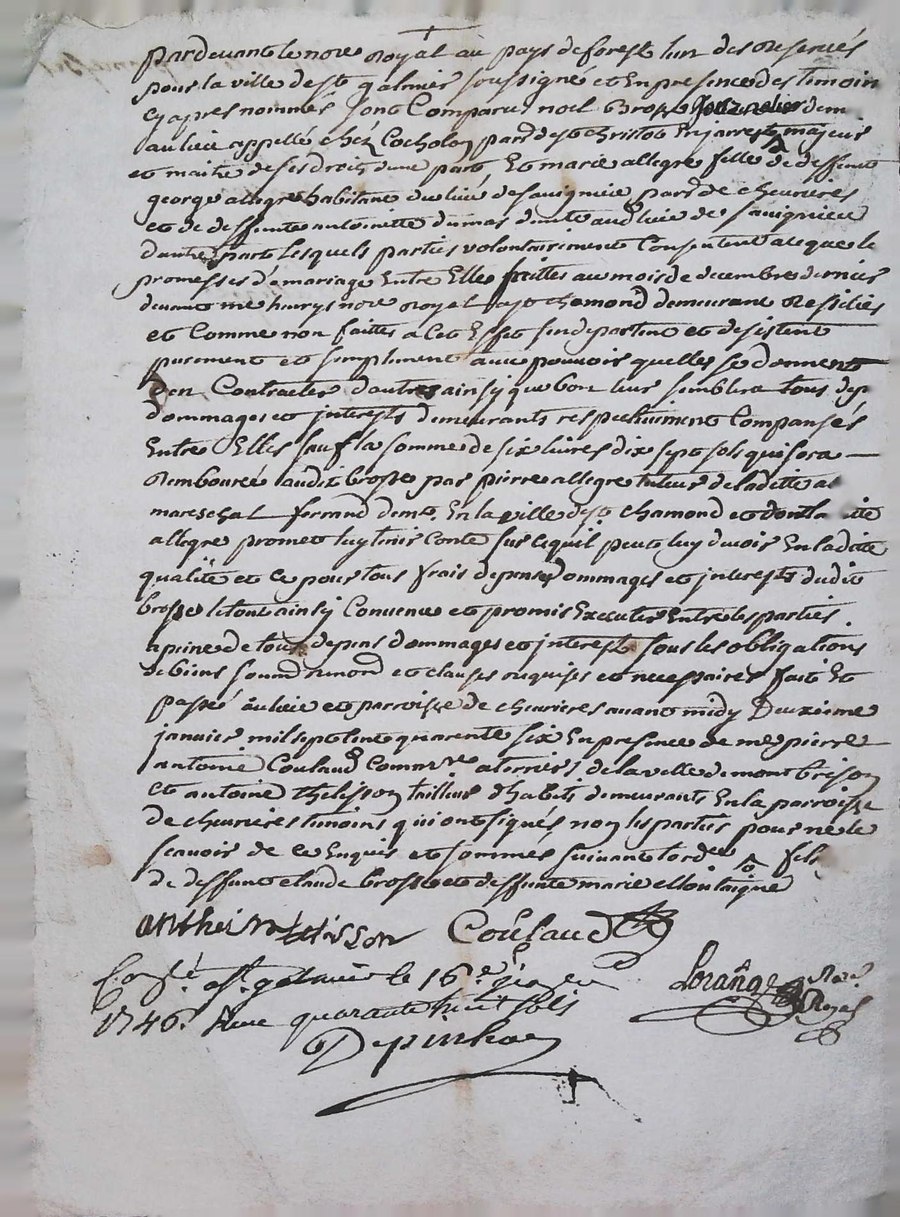 pardevant le nore royal au pays de forest lun des reservés
pour la ville de st galmier soussigné et En presence des temoin
cy apres nommés sont Comparu noel Brosse journalier dem
au lieu appellé chéz Cocholon parr de st christot En jarrest majeur
et maitre de ses droits dune part, Et marie allegre fille de deffunt
george alegre habitante du lieu de sauignieu parr de cheurieres
et de deffunte antoinette dumas demte aud lieu de sauignieu
dautre part Lesquels parties volontairement Consentent a ceque le
promesses de mariage Entre Elles faittes au mois de decembre dernier
devant me henrys nore royal a st chamond demeurent Resiliés
et Comme non faittes a Cet Effet se departent et desistent
purement et simplement avec pouvoir quelles se donnent
den Contracter dautres ainsy que bon leur semblera tous dep
dommages et interests demeurants respectivement Compansés
Entre Elles sauf la somme de six livres dix sept sols qui sera
Rembourée audit brosse par pierre allegre tuteur de laditte al
mareschal ferrand demt. En la ville de st chamond et dont la itte
allegre promet luy tenir Conte sur cequil peut luy devoir En ladite
qualité et ce pour tous frais depens dommages et interests dudit
brosse le tout ainsy Convenu et promis Executer Entre les parties
a peine de tous depens dommages et interests sous les obligations
de biens soumd renond et clauses requises et necessaires fait Et
passé au lieu et parroisse de cheurieres avant midy Deuxieme
janvier mil sept Cent quarente six En presence de me pierre
antoine Coulaud Commre a terriers de la ville de montbrison
et antoine thelisson tailleur dhabits demeurants En la parroisse
de cheurieres temoins qui ont signés non les parties pour ne le
scavoir de ce Enquis et sommés suivant lord ce fils
de deffunt claude brosse et deffunte marie Montaigne
antheine telisson Coulaud
Con.lé a st. galmier le 16e. janvier Lorange Nore.
1746. Reçu quarante huit sols Royal
Depinhac